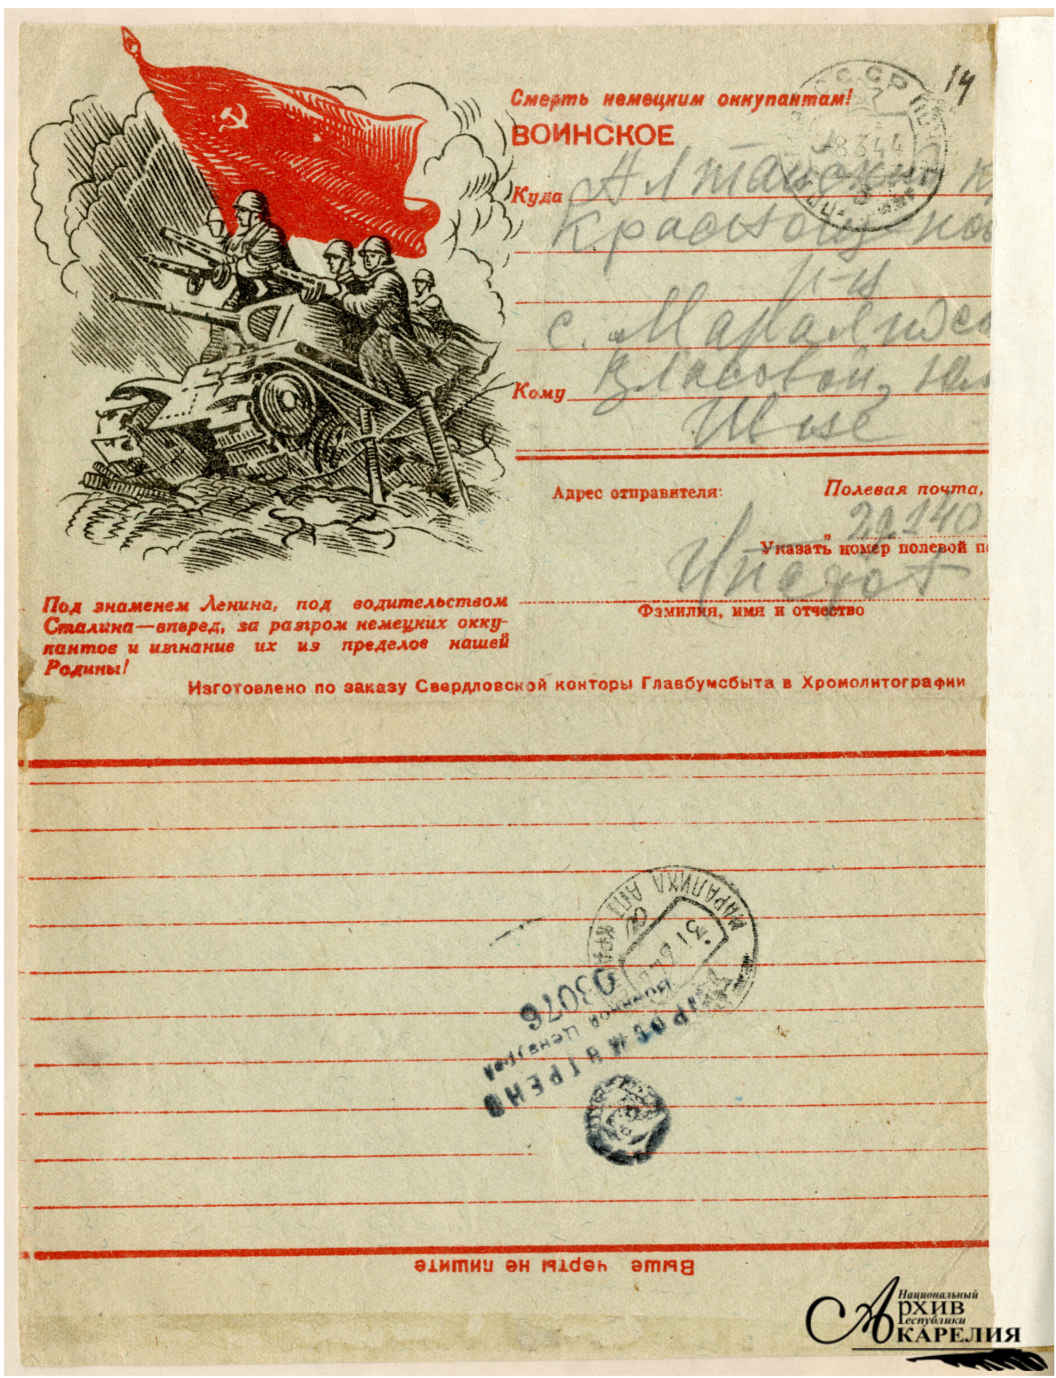 14
СССР
8344
Смерть немецким оккупантам!
ВОИНСКОЕ
Куда Алтайский
Краснощ
с. Маралихо
Кому Власовой
Адрес отправителя: Полевая почта,
29140
Указать номер полевой
Фамилия, имя и отчество
Под знаменем Ленина, под водительством
Сталина—вперед, за разгром немецких окку-
пантов и изгнание их из пределов нашей
Родины!
Изготовлено по заказу Свердловской конторы Главбумсбыта в Хромолитографии
МАРАЛИХА АЛТ КРА
03076
Военной Цензурой
ПРОСМОТРЕНО
Выше черты не пишите
Национальный
АРХИВ
Республики
КАРЕЛИЯ